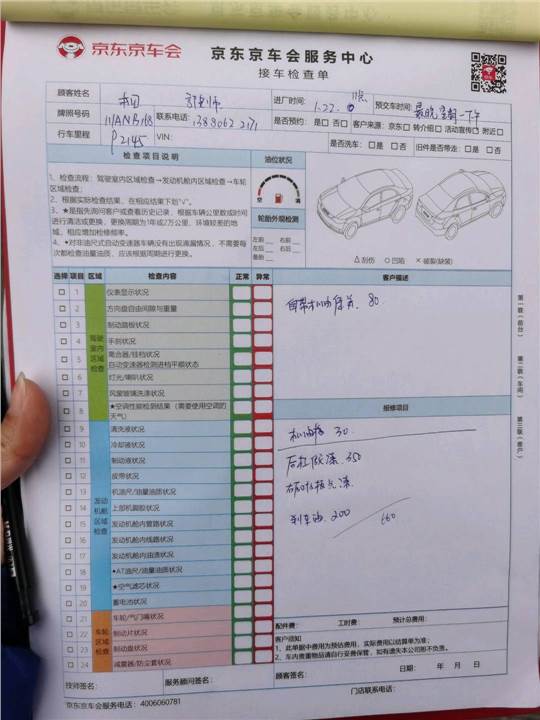 京东京车会
京东京车会服务中心
接车检查单
顾客姓名
进厂时间: 1.22.
预交车时间:
牌照号码
联系电话:
是否预约: 是 否
客户来源: 京东 转介绍 活动宣传 附近
行车里程
VIN:
是否洗车: 是 否
旧件是否带走: 是 否
检查项目说明
油位状况
1、检查流程: 驾驶室内区域检查→发动机舱内区域检查→车轮
区域检查;
2、根据实际检查结果, 在相应结果下划"V"。
3、★是指先询问客户或查看历史记录, 根据车辆公里数或时间
进行清洁或更换, 更换周期为1年或2万公里, 环境较差的地
域, 相应增加检修频率。
4、•对非油尺式自动变速器车辆没有出现滴漏情况, 不需要每
次都检查油量油质, 应该根据周期进行更换。
空 满
轮胎外观检测
左前 右前
左后 右后
备胎
△ 刮伤 ○ 凹陷 × 破裂(缺装)
选择 项目 区域 检查内容 正常 异常
客户描述
驾驶室内区域检查
1 仪表显示状况
2 方向盘自由间隙与重量
3 制动踏板状况
4 手刹状况
5 离合器/挂档状况
自动变速器检测进档平顺状态
6 灯光/喇叭状况
7 风窗玻璃洗涤状况
8 ★空调性能检测结果(需要使用空调的
天气)
80
报修项目
发动机舱区域检查
9 清洗液状况
10 冷却液状况
11 制动液状况
12 皮带状况
13 机油尺/油量油质状况
14 上部机脚胶状况
15 发动机舱内管路状况
16 发动机舱内线路状况
17 发动机舱内油渍状况
18 •AT油尺/油量油质状况
19 ★空气滤芯状况
20 蓄电池状况
30
后杠做漆 350
刹车油 200
660
车轮区域检查
21 车轮/气门嘴状况
22 制动片状况
23 制动盘状况
24 减震器/防尘套状况
配件费: 工时费: 预计总费用:
客户须知
1、此单据中费用为预估费用, 实际费用以结算单为准;
2、车内贵重物品请自行妥善保管, 如有遗失本公司恕不负责。
技师签名:
服务顾问签名:
顾客签名:
日期: 年 月 日
京东京车会服务电话: 4006060781
门店联系电话:
第一联(前台)
第二联(车间)
第三联(客户)